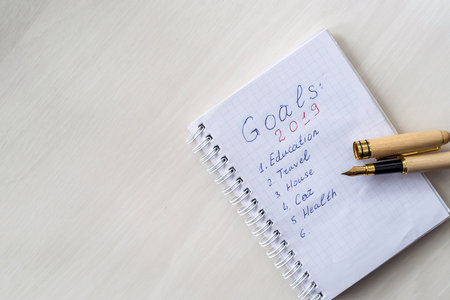 Goals:
2019
1. Education
2. Travel
3. House
4. Car
5. Health
6.